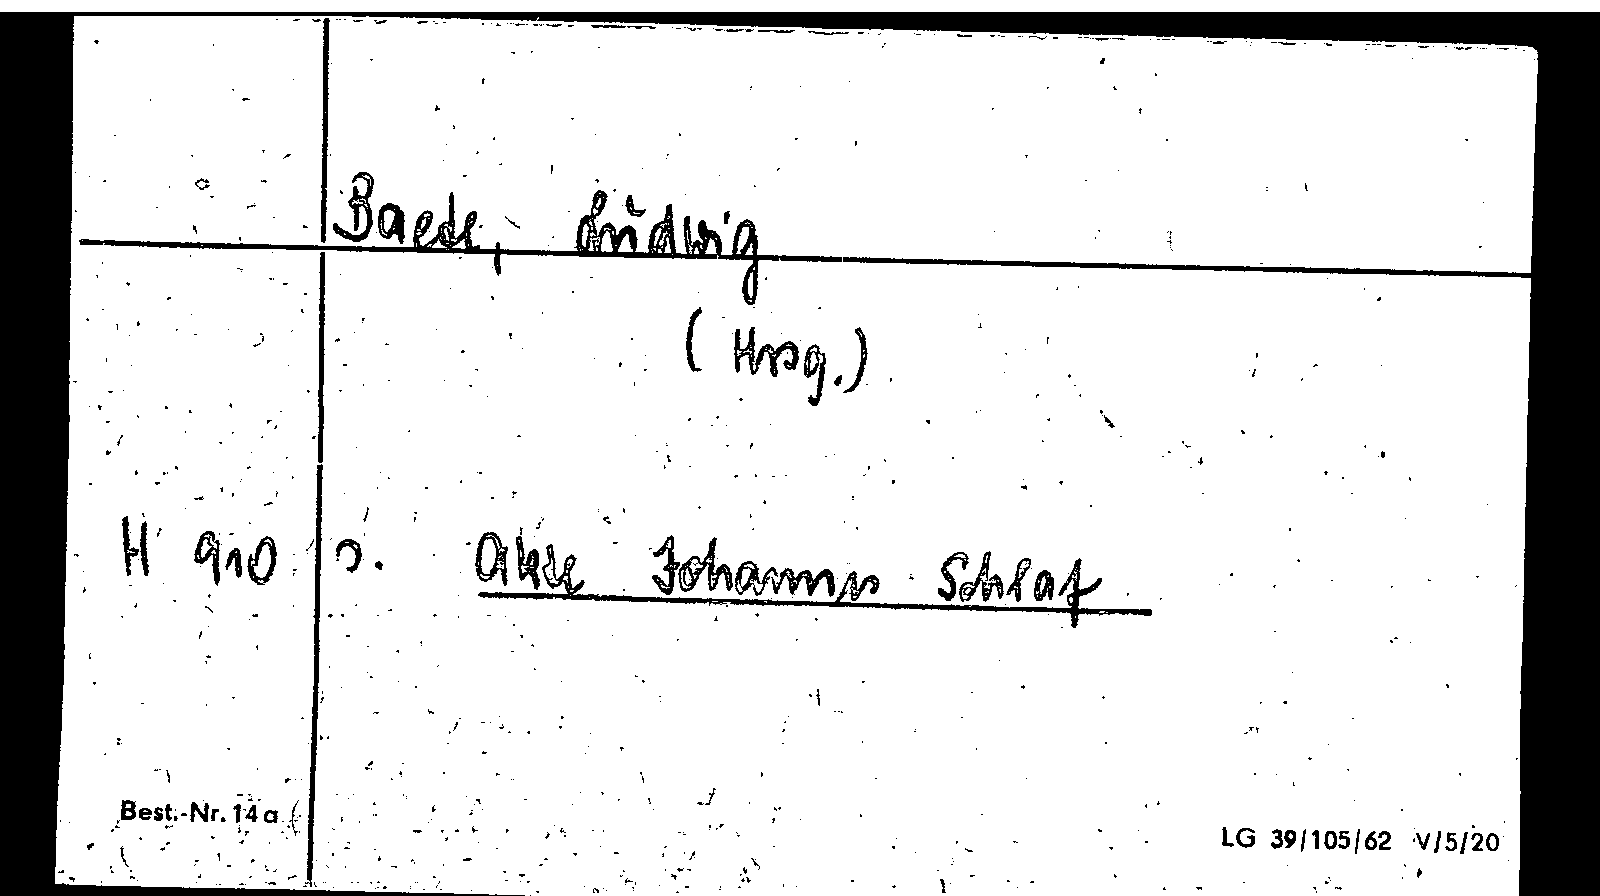 Baete, Ludwig
(Hrsg.)
H 910 s. Akte Johannes Schlaf
Best.-Nr. 14 a
LG 39/105/62 V/5/20